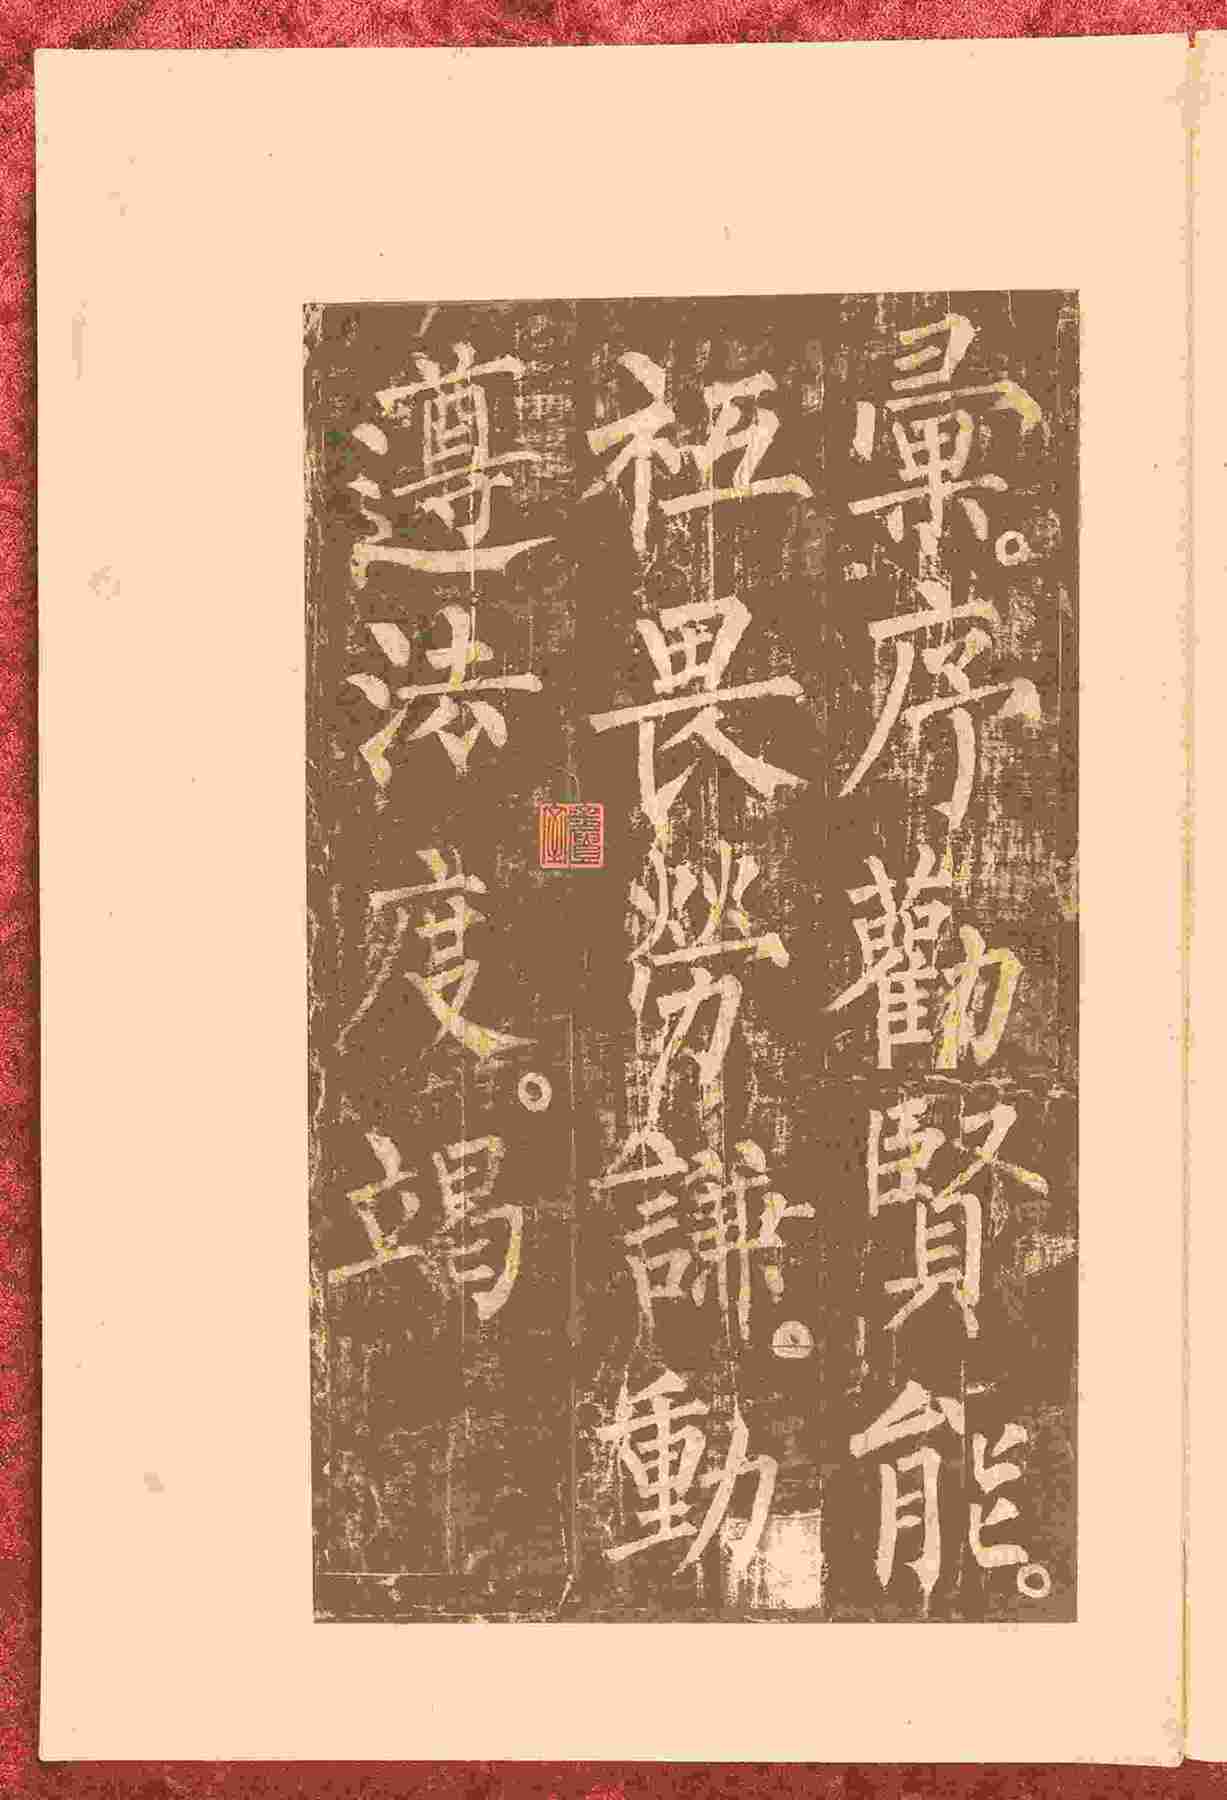 彚。序勸賢能。
祗畏勞謙。動
遵法度。竭